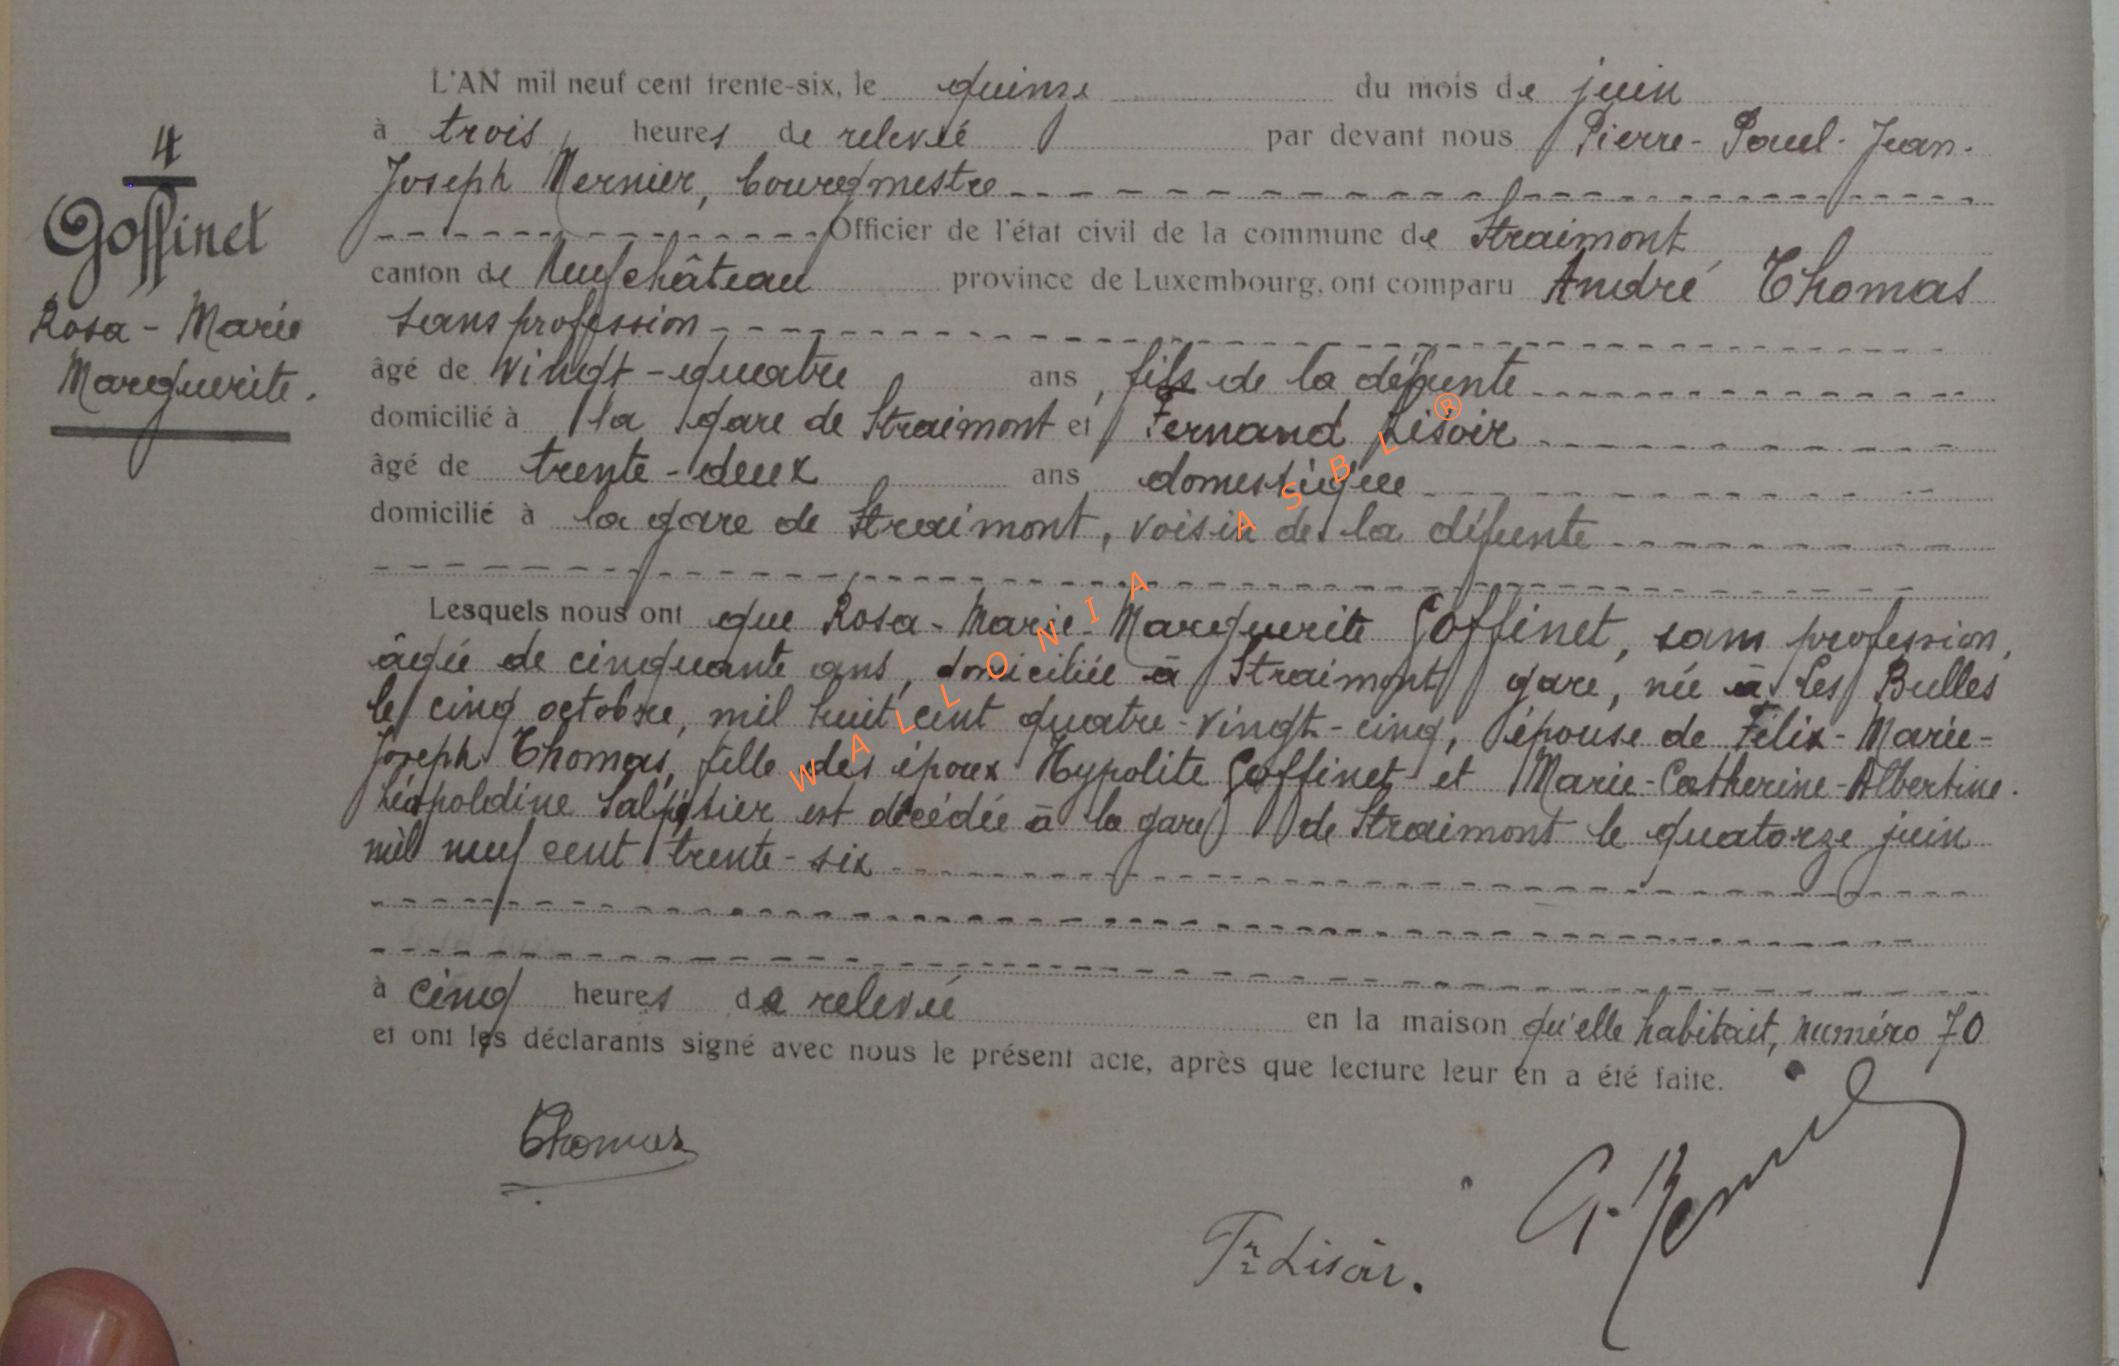 4
Goffinet
Rosa - Marie
Marguerite.
L'AN mil neuf cent trente-six, le quinze du mois de juin
à trois heures de relevée par devant nous Pierre - Paul - Jean -
Joseph Mernier, bourgmestre
Officier de l'état civil de la commune de Straimont
canton de Neufchâteau province de Luxembourg, ont comparu André Thomas
sans profession
âgé de vingt-quatre ans, fils de la défunte
domicilié à la gare de Straimont et Fernand Lisoir
âgé de trente-deux ans domestique
domicilié à la gare de Straimont, voisin de la défunte
Lesquels nous ont que Rosa - Marie - Marguerite Goffinet, sans profession,
âgée de cinquante ans, domiciliée à Straimont gare, née à Les Bulles
le cinq octobre, mil huit cent quatre-vingt-cinq, épouse de Félix - Marie -
Joseph Thomas, fille des époux Hypolite Goffinet et Marie-Catherine-Albertine-
Léopoldine est décédée à la gare de Straimont le quatorze juin
mil neuf cent trente-six
à cinq heures de relevée en la maison qu'elle habitait, numéro 70
et ont les déclarants signé avec nous le présent acte, après que lecture leur en a été faite.
Thomas
Lisoir.
WALLONIA ASBL ®